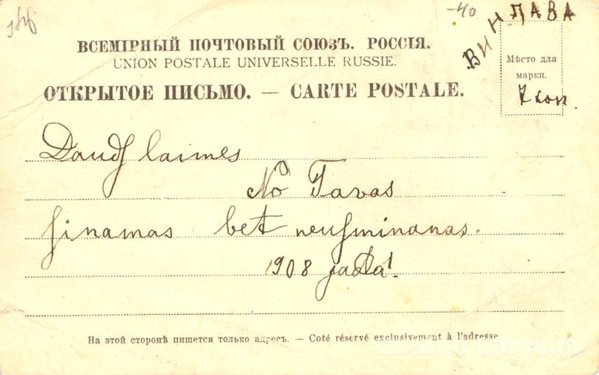 -40
ВИНДАВА
ВСЕМІРНЫЙ ПОЧТОВЫЙ СОЮЗЪ. РОССІЯ.
UNION POSTALE UNIVERSELLE RUSSIE.
Мѣсто для
марки.
ОТКРЫТОЕ ПИСЬМО. — CARTE POSTALE.
Daudſ laimes
No Tavas
ſinamas bet neuſminanas.
1908 gada!
На этой сторонѣ пишется только адресъ. — Coté réservé exclusivement à l'adresse